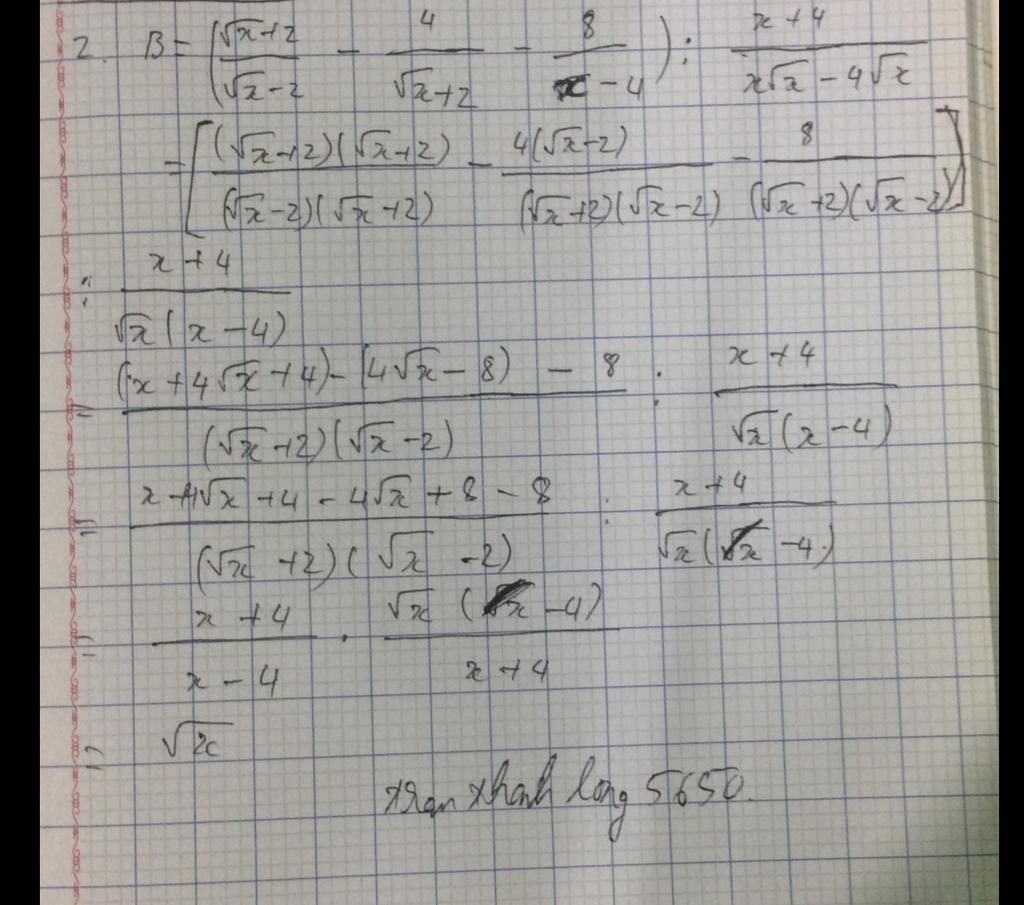 2. B = (√x+2 / √x-2 - 4 / √x+2 - 8 / x - 4) : x + 4 / x√x - 4√x
= [(√x+2)(√x+2) / (√x-2)(√x+2) - 4(√x-2) / (√x+2)(√x-2) - 8 / (√x+2)(√x-2)]
: x + 4 / √x(x-4)
= (x+4√x+4) - (4√x-8) - 8 / (√x+2)(√x-2) : x+4 / √x(x-4)
= x+4√x+4-4√x+8-8 / (√x+2)(√x-2) : x+4 / √x(x-4)
= x+4 / x-4 . √x(x-4) / x+4
= √x
long 5650.